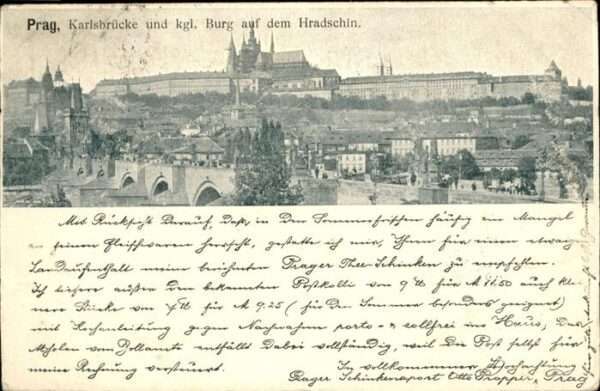 Prag, Karlsbrücke und kgl. Burg auf dem Hradschin.
Mit Rücksicht darauf, daß in den Sommerfrischen häufig ein Mangel
an feinen Fleischwaren herrscht, gestatte ich mir, Ihnen für einen etwaigen
Landaufenthalt meine berühmten Prager Thee-Schinken zu empfehlen.
Ich liefere außer den bekannten Postkolli von 9 ℔ für M 11.50 auch klei
nere Stücke von 7 ℔ für M 9.25 (für den Sommer besonders geeignet)
mit Kochanleitung gegen Nachnahme porto- & zollfrei ins Haus, das
Abholen vom Zollamte entfällt dabei vollständig, weil die Post selbst für
meine Rechnung versteuert.
In vollkommener Hochachtung
Prager Schinkenexport Otto Propper, Prag